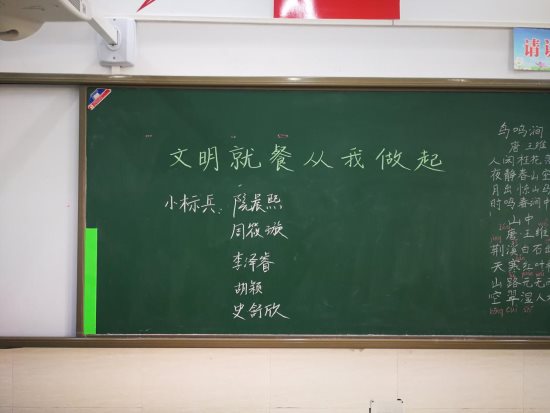 请
文明就餐从我做起
小标兵: 晨熙
周筱璇
李泽睿
胡颖
史舒欣
鸟鸣涧
唐 王维
人闲桂花
夜静春山空
月出惊山鸟
时鸣春涧中
山中
唐·王维
荆溪白石出
天寒红叶
山路元无
空翠湿人